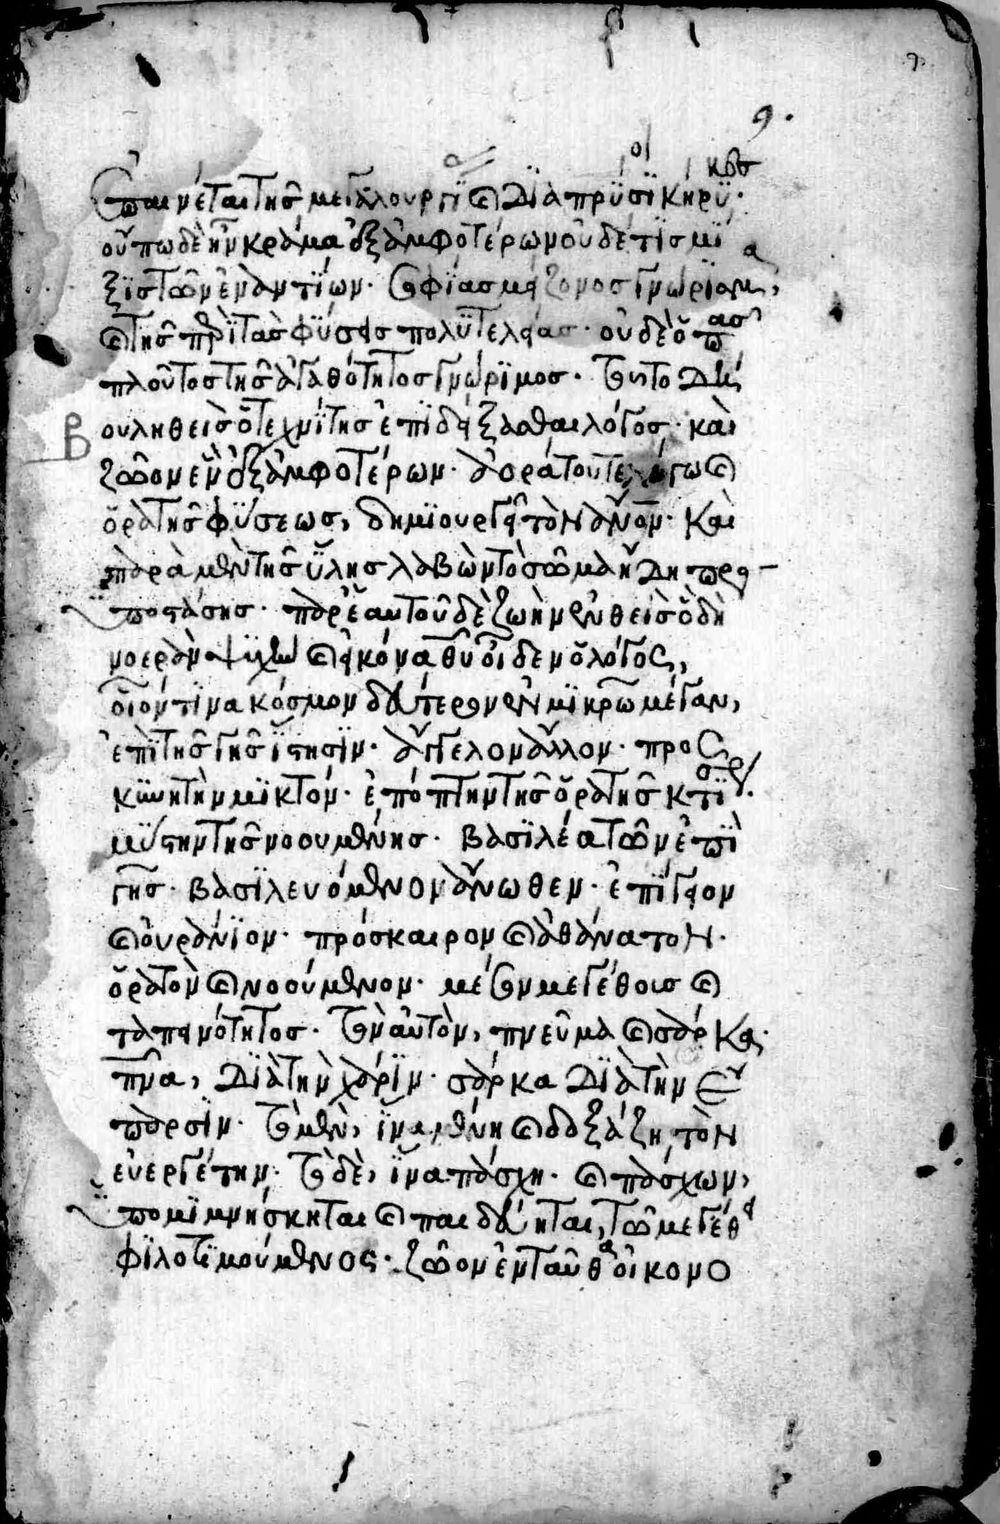 9.
ἐπαινέται τῆς μεγαλουργί(ας) καὶ διαπρύσιοι κήρυκες·
οὔπω δὲ ἦν κράμα ἐξ ἀμφοτέρων οὐδέ τις μί
ξις τῶν ἐναντίων· σοφίας μείζονος γνώρισμα,
καὶ τῆς περὶ τὰς φύσεις πολυτελείας· οὐδὲ ὁ πᾶς
πλοῦτος τῆς ἀγαθότητος γνώριμος· τοῦτο δὴ β
ουληθεὶς ὁ τεχνίτης ἐπιδείξασθαι λόγος· καὶ
ζῶον ἓν ἐξ ἀμφοτέρων· ἀοράτου τε λέγω καὶ
ὁρατῆς φύσεως, δημιουργεῖ τὸν ἄνον· καὶ
παρὰ μὲν τῆς ὕλης λαβὼν τὸ σῶμα ἤδη προ
ϋποστάσης· παρ' ἑαυτοῦ δὲ ζωὴν ἐνθεὶς ὃ δὴ
νοερὰν ψυχὴν καὶ εἰκόνα θυ οἶδεν ὁ λόγος,
οἷόν τινα κόσμον δεύτερον ἐν μικρῶ μέγαν,
ἐπὶ τῆς γῆς ἵστησιν· ἄγγελον ἄλλον· προς
κυνητὴν μικτόν· ἐπόπτην τῆς ὁρατῆς κτίσεως·
μύστην τῆς νοουμένης· βασιλέα τῶν ἐπὶ
γῆς· βασιλευόμενον ἄνωθεν· ἐπίγειον
καὶ οὐράνιον· πρόσκαιρον καὶ ἀθάνατον·
ὁρατὸν καὶ νοούμενον· μέσον μεγέθους καὶ
ταπεινότητος· τὸν αὐτὸν, πνεῦμα καὶ σάρκα·
πνα, διὰ τὴν χάριν· σάρκα διὰ τὴν ἔ
παρσιν· τὸ μὲν, ἵνα μένη καὶ δοξάζη τὸν
εὐεργέτην· τὸ δὲ, ἵνα πάσχη· καὶ πάσχων,
ὑπομιμνήσκηται καὶ παιδεύηται, τῶ μεγέθει
φιλοτιμούμενος· ζῶον ἐνταῦθα οἰκονο